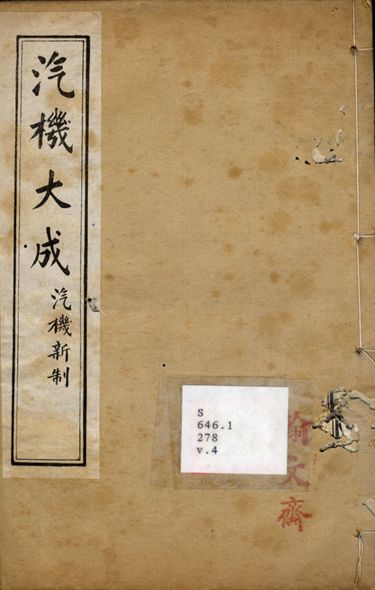 汽機大成
汽機新制
S
646.1
278
v.4
文齋